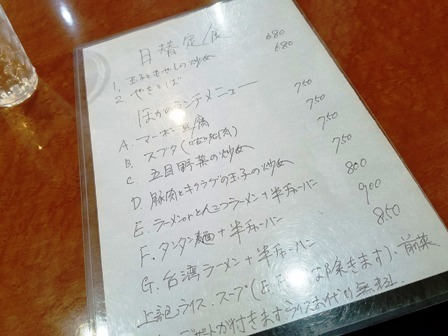 日替定食
1. 玉子ともやしの炒め 680
2. やきそば 680
ほかのランチメニュー
A. マーボー豆腐 750
B. スブタ 750
C. 五目野菜の炒め 750
D. 豚肉とキクラゲの玉子の炒め 750
E. ラーメン + 半チャーハン 800
F. タンタン麺 + 半チャーハン 900
G. 台湾ラーメン + 半チャーハン 850
上記ライス、スープ 除きます)、前菜
が付きます 無料